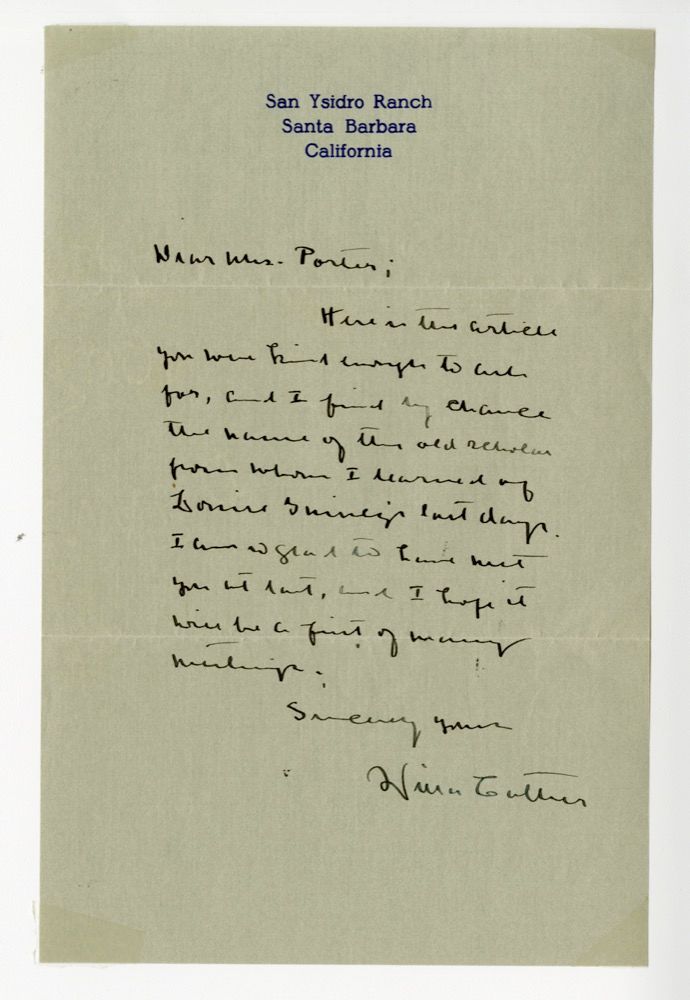 San Ysidro Ranch
Santa Barbara
California
Dear Mrs. Porter;
Here is the article
you were kind enough to ask
for, and I find by chance
the name of the old scholar
from whom I learned of
Louise Guiney's last days.
I am so glad to have met
you at last, and I hope it
will be a first of many
meetings.
Sincerely yours
Willa Cather